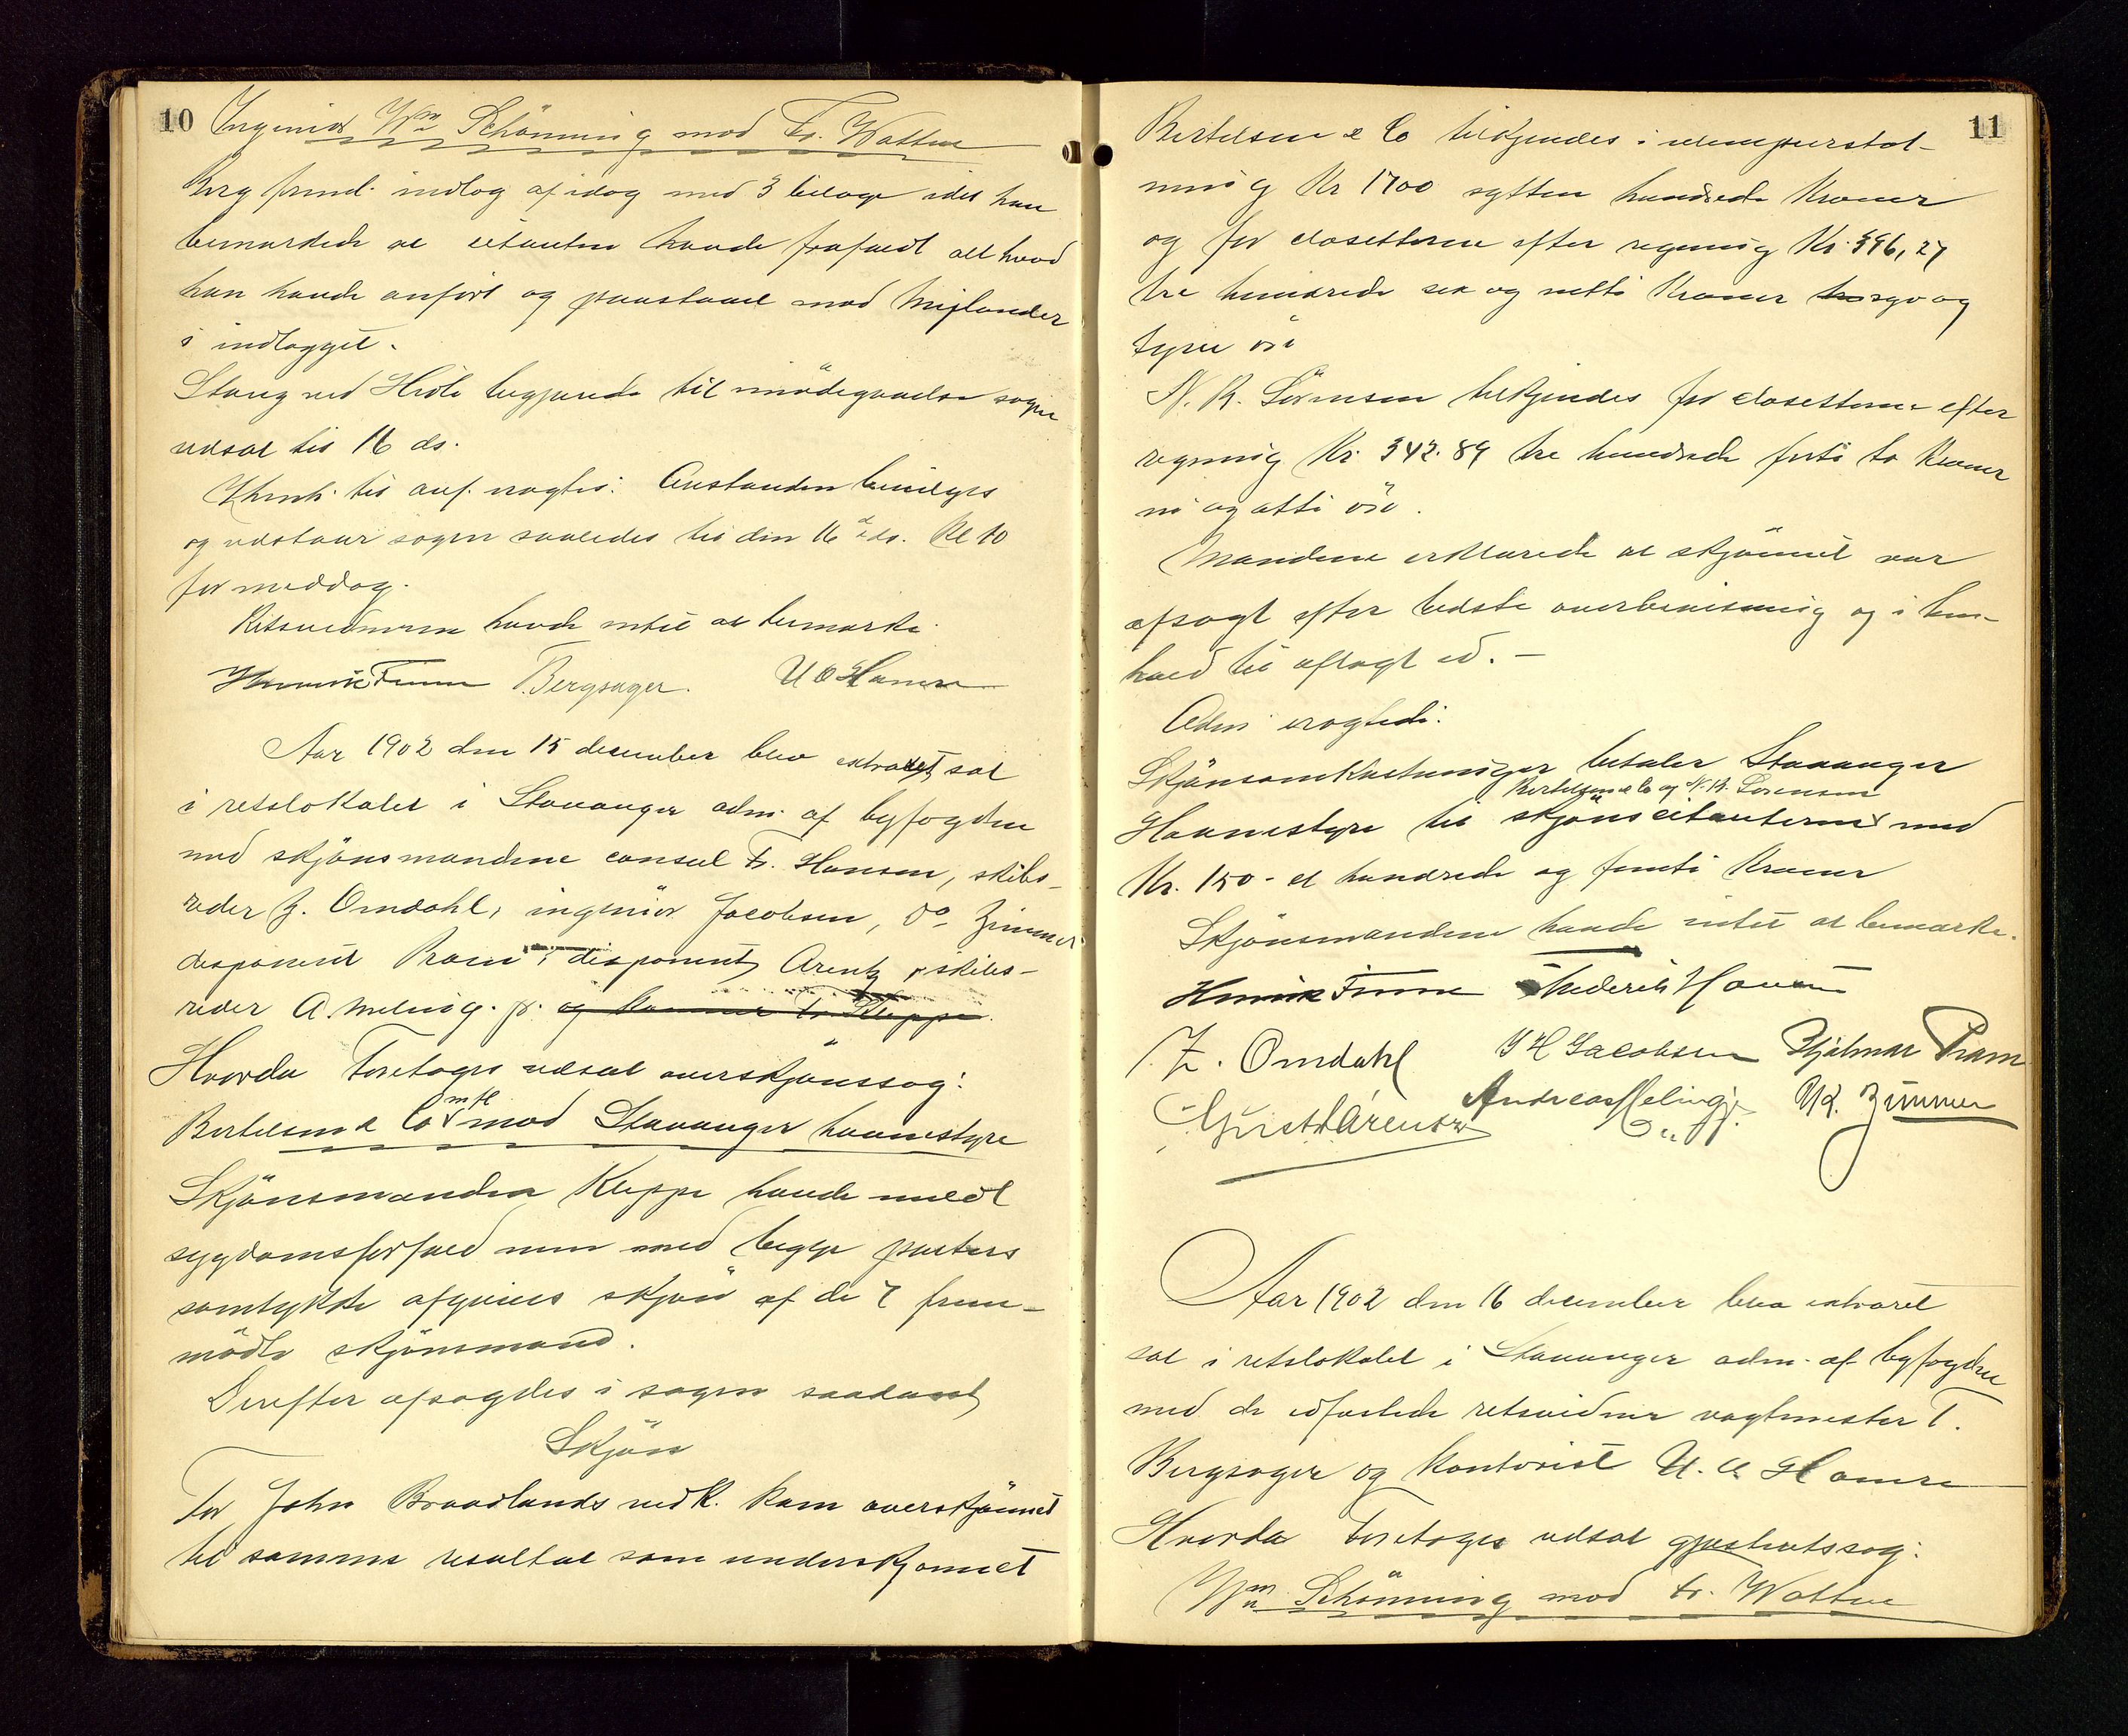 10
Ingeniør Wm Schönning mod Fr. Watten
Berg freml. indlæg af idag med 3 bilage idet han
bemærkede at citanten havde frafaldt alt hvad
han havde anført og paastaaet mod
i indlægget.
Stang ved Hidle begjærede til imödegaaelse sagen
udsat til 16 ds.
Thjenb. til anf. eragtes: Anstanden bevilges
og udstaar sagen saaledes til den 16de ds. Kl 10
formiddag.
Retsvidnerne havde intet at bemærke.
Henrik Finne Bergsager. U O Hamre
Aar 1902 den 15 december blev extraret sat
i retslokalet i Stavanger adm. af byfogden
med skjönsmændene consul Fr. Hansen, skibs-
reder Z. Omdahl, ingeniör Jacobsen, do Zimmer
disponent Pram, disponent Arentz, skibs-
reder A. Meling jr. og Kleppe.
Hvorda Foretoges udsat overskjönssag:
Bertelsen & Co m fl mod Stavanger havnestyre
Skjönsmanden Kleppe havde meldt
sygdomsforfald men med begge parters
samtykke afgives skjön af de 7 frem-
mödte skjönsmænd.
Derefter afsagdes i sagen saadant
Skjön
For John Braadlands vedk. kom overskjönnet
til samme resultat som underskjönnet
11
Bertelsen & Co tilkjendes i ulempeerstat-
ning Kr 1700 sytten hundrede Kroner
og for closetterne efter regning Kr. 396,27
tre hundrede sex og nitti Kroner syv og
tyve öre
N. R. Sörensen tilkjendes for closetterne efter
regning Kr. 342.89 tre hundrede förti to Kroner
ni og otti öre.
Mændene erklærede at skjönnet var
afsagt efter bedste overbevisning og i hen-
hold til aflagt ed. -
Adm. eragtede:
Skjönsomkostninger betaler Stavanger
Bertelsen & Co og N. R. Sörensen
Havnestyre til skjönscitanterne med
Kr. 150 - et hundrede og femti Kroner
Skjönsmændene havde intet at bemærke.
Henrik Finne Frederik Hansen
Z. Omdahl J H Jacobsen Hjalmar Pram
Arentz Andreas Meling jr. Zimmer
Aar 1902 den 16 december blev extraret
sat i retslokalet i Stavanger adm. af byfogden
med de edfæstede retsvidner vagtmester T.
Bergsager og kontorist U. O. Hamre
Hvorda Foretoges udsat gjæsteretssag:
Wm Schönning mod Fr. Watten